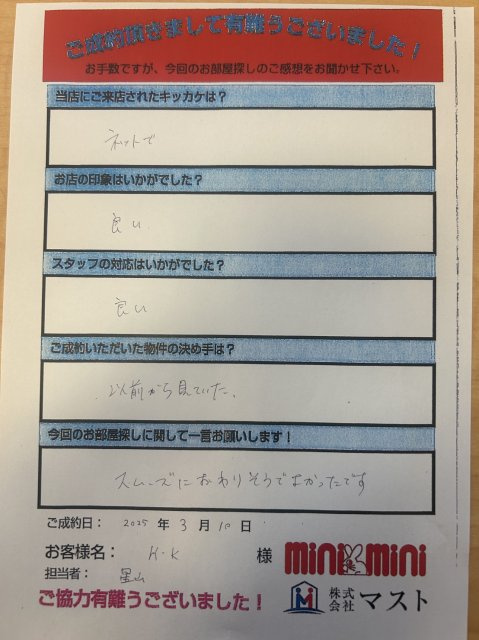 ご成約頂きまして有難うございました！
お手数ですが、今回のお部屋探しのご感想をお聞かせ下さい。
当店にご来店されたキッカケは？
ネットで
お店の印象はいかがでした？
良い
スタッフの対応はいかがでした？
良い
ご成約いただいた物件の決め手は？
以前から見ていた。
今回のお部屋探しに関して一言お願いします！
スムーズにおわりそうでよかったです
ご成約日： 2025 年 3 月 10 日
お客様名： H・K 様
担当者： 星山
mini mini
ご協力有難うございました！
株式会社 マスト